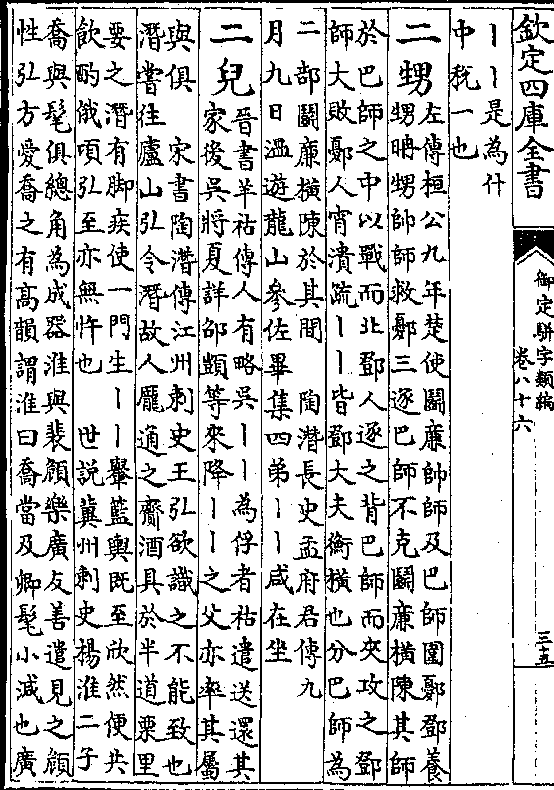 御定駢字類編
卷八十六
三十五
欽定四庫全書
丨丨是為什
中稅一也
二甥
左傳桓公九年楚使鬭廉帥師及巴師圍鄾鄧養
甥聃甥帥師救鄾三逐巴師不克鬭廉橫陳其師
於巴師之中以戰而北鄧人逐之背巴師而夾攻之鄧
師大敗鄾人宵潰疏丨丨皆鄧大夫衡橫也分巴師為
二部鬭廉橫陳於其間 陶潛長史孟府君傳九
月九日溫遊龍山參佐畢集四弟丨丨咸在坐
二兒
晉書羊祜傳人有略吳丨丨為俘者祜遣送還其
家後吳將夏詳邵顗等來降丨丨之父亦率其屬
與俱 宋書陶潛傳江州刺史王弘欲識之不能致也
潛嘗往廬山弘令潛故人龐通之齎酒具於半道栗里
要之潛有脚疾使一門生丨丨轝籃輿既至欣然便共
飲酌俄頃弘至亦無忤也 世說冀州刺史楊淮二子
喬與髦俱總角為成器淮與裴頠樂廣友善遣見之頠
性弘方愛喬之有高韻謂淮曰喬當及卿髦小減也廣